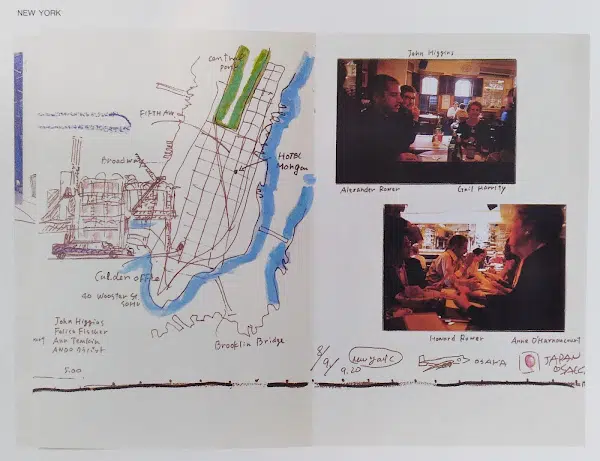 NEW YORK
central
park
FIFTH AV
Broadway
HOTEL
Morgan
Calder office
40 Wooster St.
SOHO
John Higgins
Felice Fischer
Ann Temkin
ANDO
Brooklin Bridge
5.00
John Higgins
Alexander Rower
Gail Harrity
Howard Rower
Anne D'Harnoncourt
8/9/9.20
new york
OSAKA
JAPAN
OSAKA